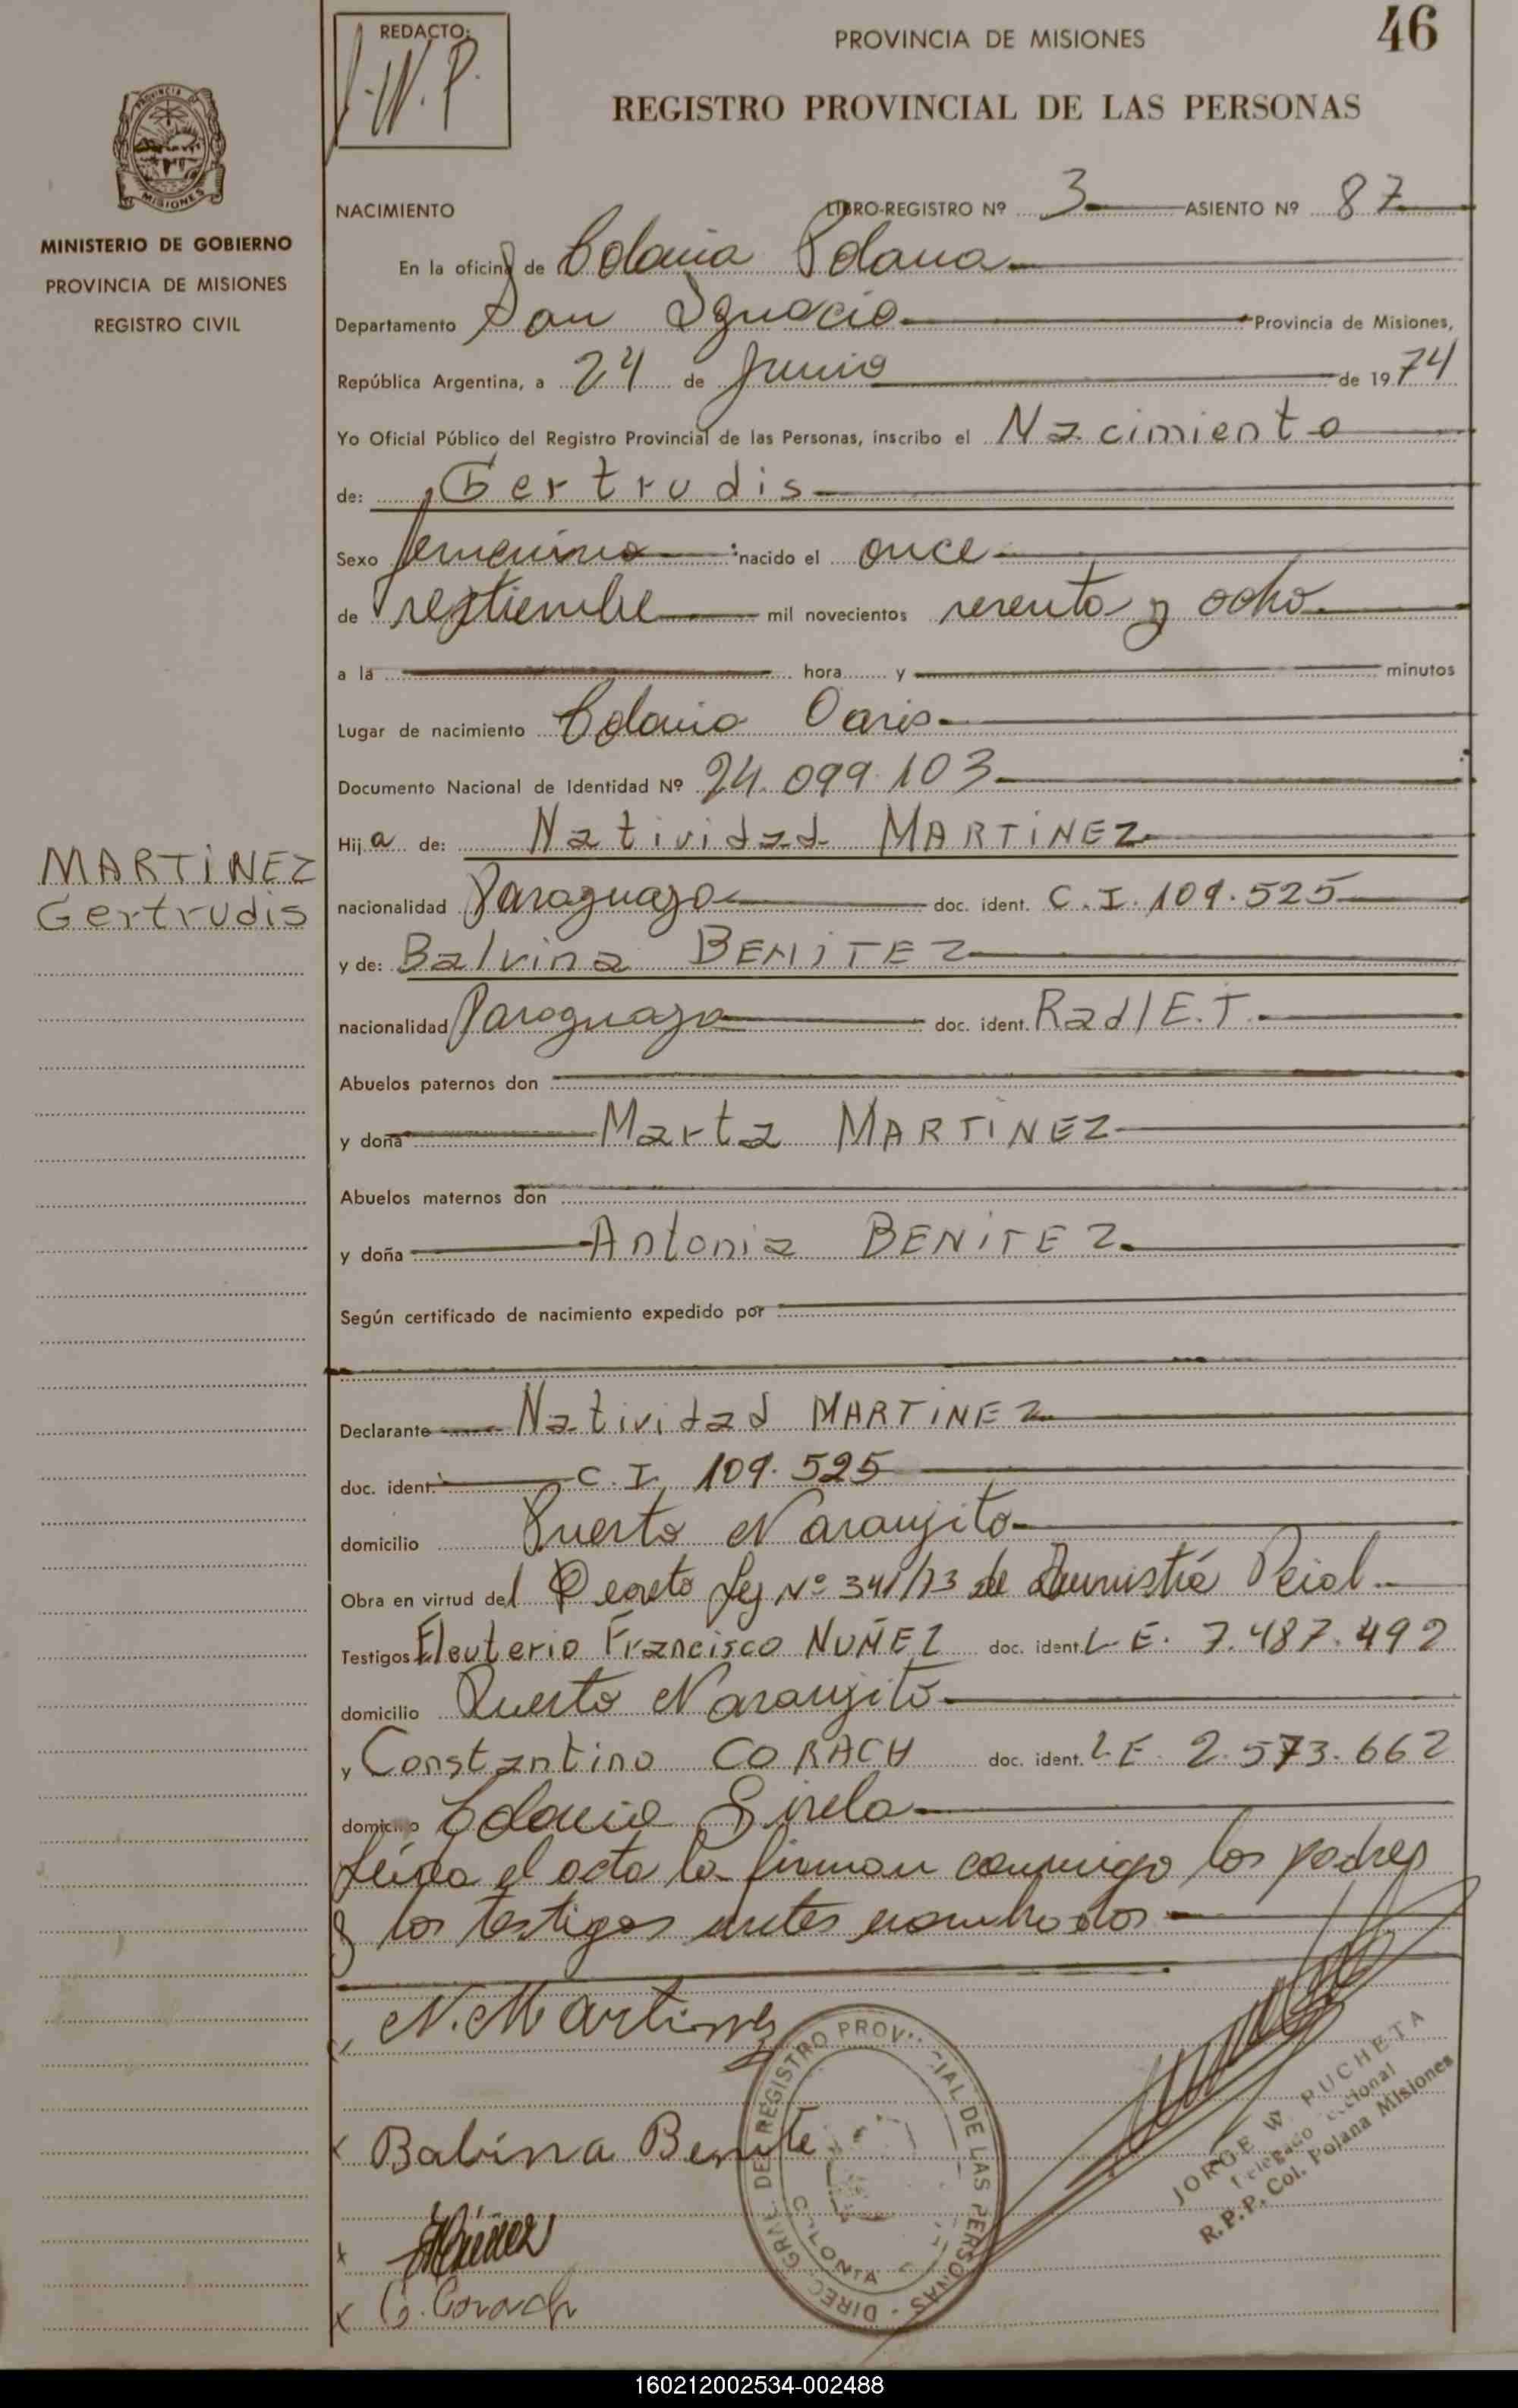 REDACTO:
J.W.P.
PROVINCIA DE MISIONES
46
REGISTRO PROVINCIAL DE LAS PERSONAS
MISIONES
MINISTERIO DE GOBIERNO
PROVINCIA DE MISIONES
REGISTRO CIVIL
NACIMIENTO LIBRO-REGISTRO Nº 3 ASIENTO Nº 87
En la oficina de Colonia Polana
Departamento San Ignacio Provincia de Misiones,
República Argentina, a 24 de Junio de 1974
Yo Oficial Público del Registro Provincial de las Personas, inscribo el Nacimiento
de: Gertrudis
Sexo femenino nacido el once
de septiembre mil novecientos sesenta y ocho
a la hora y minutos
Lugar de nacimiento Colonia Oasis
Documento Nacional de Identidad Nº 24.099.103
Hija de: Natividad MARTINEZ
MARTINEZ
Gertrudis
nacionalidad Paraguaya doc. ident. C.I. 109.525
y de: Balvina BENITEZ
nacionalidad Paraguaya doc. ident. Rad/E.T.
Abuelos paternos don
y doña Marta MARTINEZ
Abuelos maternos don
y doña Antonia BENITEZ
Según certificado de nacimiento expedido por
Declarante Natividad MARTINEZ
doc. ident. C.I. 109.525
domicilio Puerto Naranjito
Obra en virtud del Decreto Ley Nº 341/73 de Amnistía Pcial.
Testigos Eleuterio Francisco NUÑEZ doc. ident. L.E. 7.487.492
domicilio Puerto Naranjito
y Constantino CORACH doc. ident. L.E. 2.573.662
domicilio Colonia Gisela
leída el acta la firman conmigo los padres
y los testigos antes nombrados
N. Martinez
Babina Benite
Núñez
C. Corach
DIREC. GRAL. DEL REGISTRO PROVINCIAL DE LAS PERSONAS
COLONIA
JORGE W. PUCHETA
Delegado Seccional
R.P.P. Col. Polana Misiones
160212002534-002488